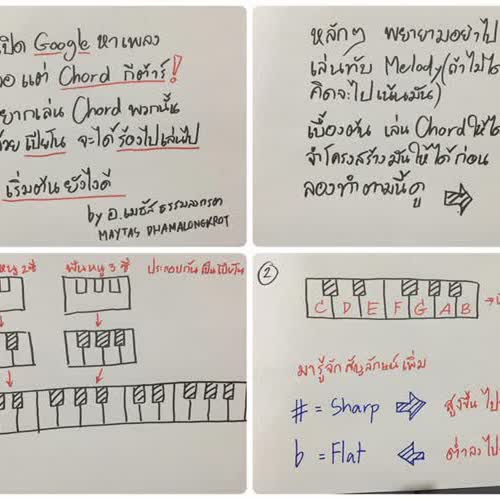 เปิด Google หาเพลง
เจอ แต่ Chord กีต้าร์!
อยากเล่น Chord พวกนั้น
ด้วย เปียโน จะได้ ร้องไปเล่นไป
เริ่มต้น ยังไงดี
by อ.เมธัส ธรรมลงกรต
MAYTAS DHAMALONGKROT
หลักๆ พยายามอย่าไป
เล่นทับ Melody (ถ้าไม่ได้
คิดจะไปเน้นมัน)
เบื้องต้น เล่น Chord ให้ได้
จำโครงสร้างมันให้ได้ก่อน
ลองทำตามนี้ดู
2 ซี่
ฟันหนู 3 ซี่
ประกอบกันเป็นเปียโน
2
C D E F G A B
มารู้จักสัญลักษณ์เพิ่ม
# = Sharp สูงขึ้น ไป
b = Flat ต่ำลง ไป